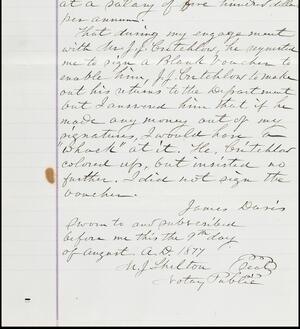 at a salary of five hundred dollars
per annum.
That during my engagement
with Mr. J. J. Critchlow, he requested
me to sign a Blank Voucher to
enable him, J. J. Critchlow to make
out his returns to the Department
but I answered him that if he
made any money out of my
signature, I would have a
"Chock" at it. He, Critchlow
colored up, but insisted no
further. I did not sign the
voucher.
James Davis
Sworn to and subscribed
before me this the 9th day
of August A.D. 1877
M. J. Shelton Seal
Notary Public